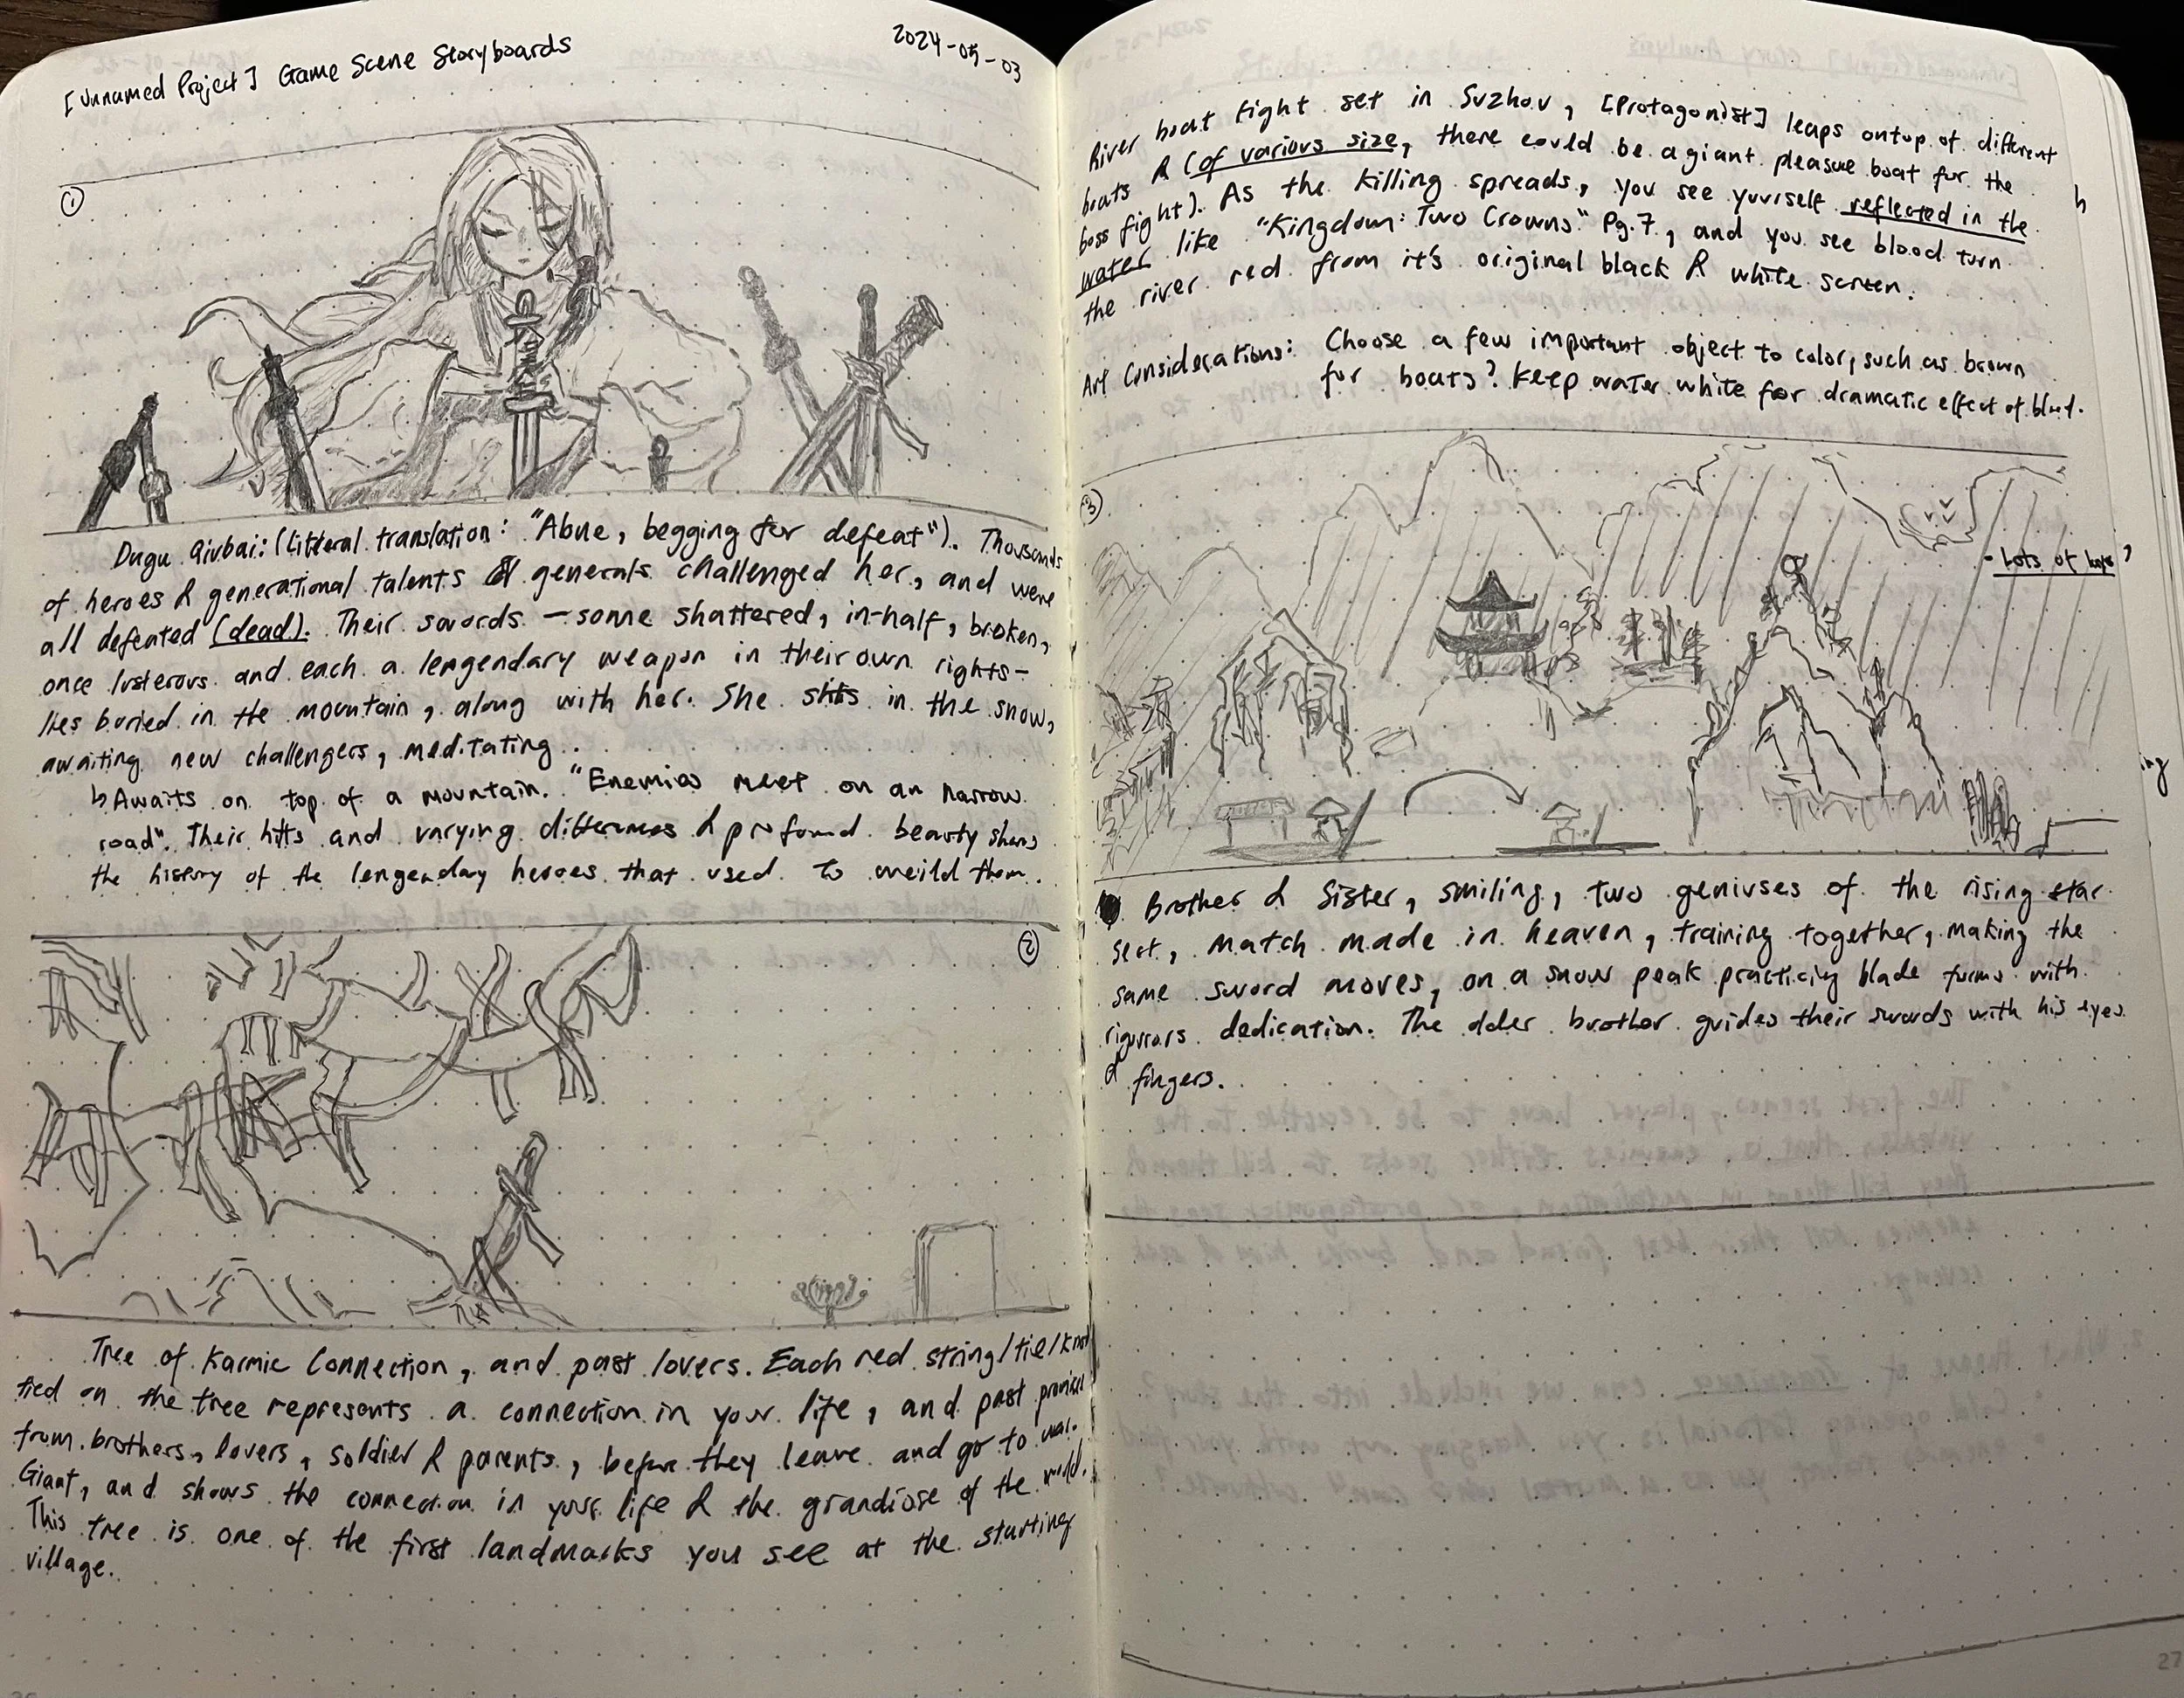 [Unnamed Project] Game Scene Storyboards
2024-05-03
①
Dugu Qiubai: (Litteral translation: "Alone, begging for defeat"). Thousands
of heroes & generational talents & generals challenged her, and were
all defeated (dead). Their swords - some shattered, in-half, broken,
once lusterous and each a lengendary weapon in their own rights-
lies buried in the mountain, along with her. She sits in the snow,
awaiting new challengers, meditating.
↳ Awaits on top of a mountain. "Enemies meet on an narrow
road". Their hilts and varying differences & profound beauty shows
the history of the lengendary heroes that used to weild them.
②
Tree of Karmic Connection, and past lovers. Each red string/tie/knot
tied on the tree represents a connection in your life, and past promises
from brothers, lovers, soldier & parents, before they leave and go to war.
Giant, and shows the connection in your life & the grandiose of the world.
This tree is one of the first landmarks you see at the starting
village.
River boat fight set in Suzhou, [Protagonist] leaps ontop of different
boats & (of various size, there could be a giant pleasue boat for the
boss fight). As the killing spreads, you see yourself reflected in the
water like "Kingdom: Two Crowns" Pg. 7, and you see blood turn
the river red from it's original black & white screen.
Art Considerations: Choose a few important object to color, such as brown
for boats? Keep water white for dramatic effect of blood.
③
- Lots of
Brother & Sister, smiling, two geniuses of the rising star
sect, match made in heaven, training together, making the
same sword moves, on a snow peak practicing blade forms with
rigurors dedication. The older brother guides their swords with his eyes
& fingers.
27